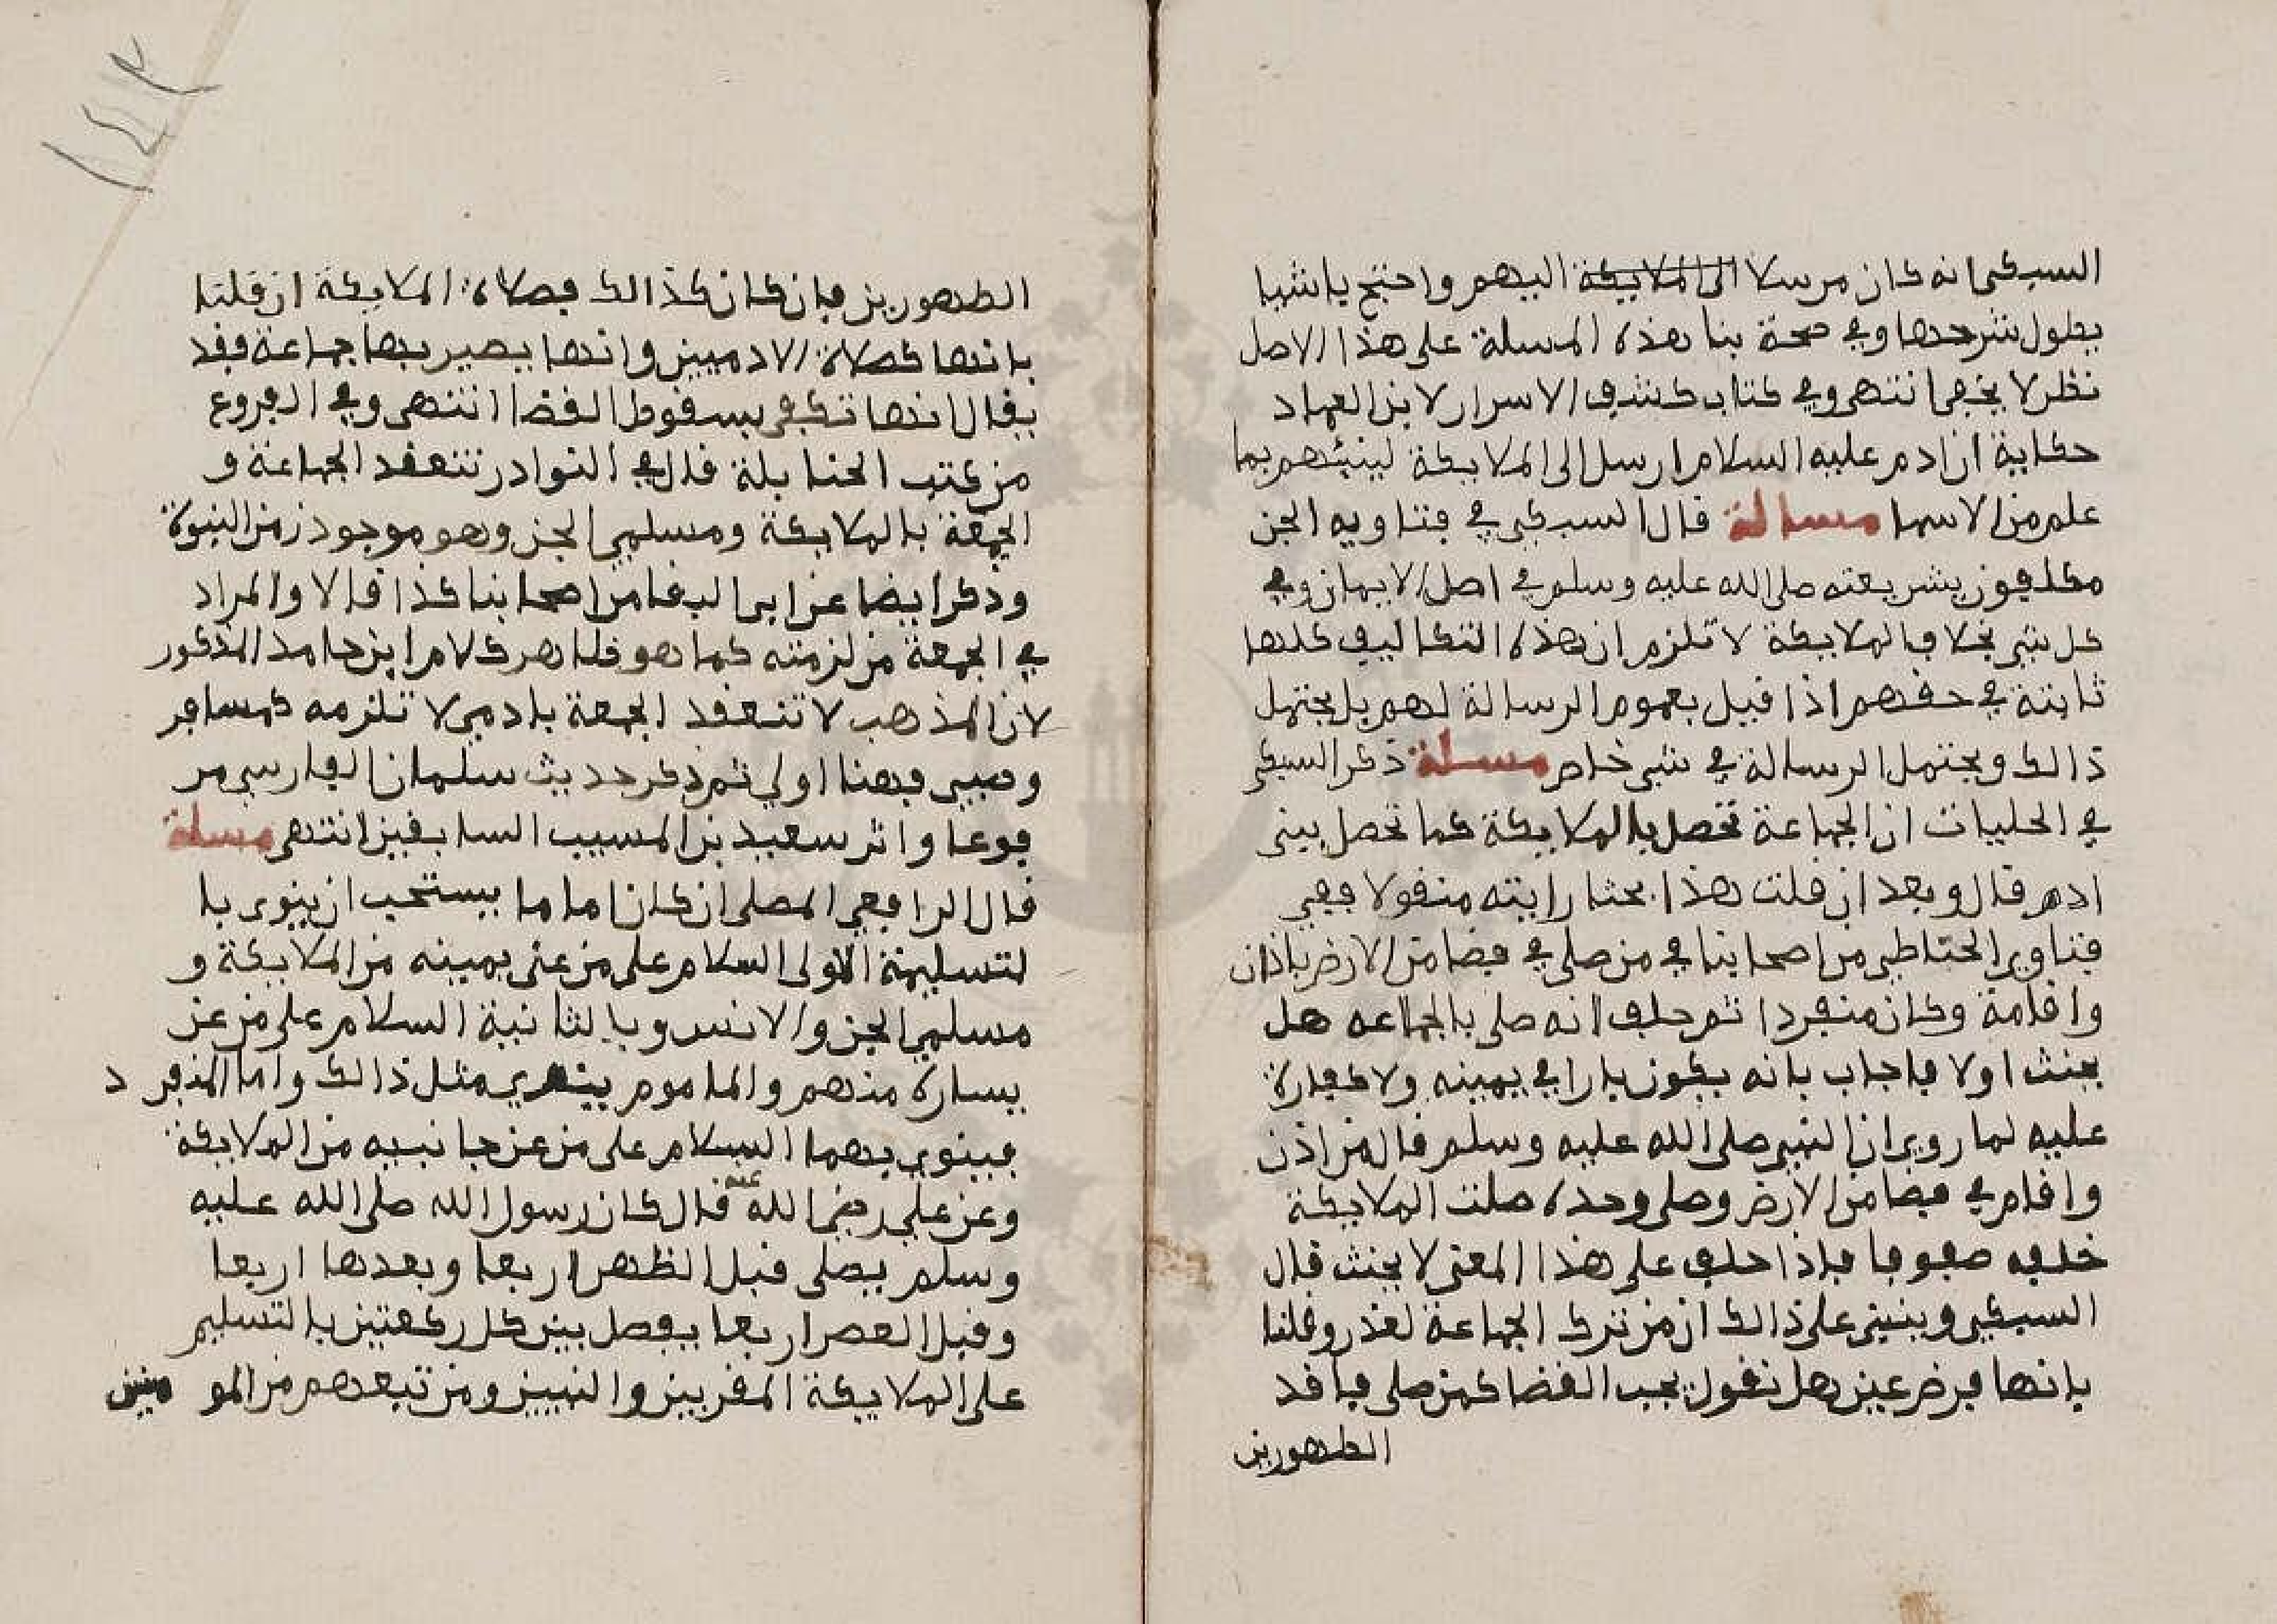 السبكي انه كان مرسلا الى الملايكة اليهم واحتج باشيا
يطول شرحها وفي صحة بنا هذه المسلة على هذا الاصل
نظر لا يخفى انتهى وفي كتاب كشف الاسرار لابن العماد
حكاية ان ادم عليه السلام ارسل الى الملايكة لينبئهم بما
علم من الاسما مسالة قال السبكي في فتاويه الجن
مكلفون بشريعته صلى الله عليه وسلم في اصل الايمان وفي
كل شي بخلاف الملايكة لا تلزم ان هذه التكاليف كلها
ثابتة في حقهم اذا قيل بعموم الرسالة لهم بل يحتمل
ذالك ويحتمل الرسالة في شي خاص مسلة ذكر السبكي
في الحلبيات ان الجماعة تحصل بالملايكة كما تحصل ببني
ادم قال وبعد ان قلت هذا بحثا رايته منقولا ففي
فتاوي الحناطي من اصحابنا في من صلى في فضا من الارض باذان
واقامة وكان منفردا ثم حلف انه صلى بالجماعه هل
يحنث اولا فاجاب بانه يكون بارا في يمينه ولا كفارة
عليه لما روي ان النبي صلى الله عليه وسلم قال من اذن
واقام في فضا من الارض وصلى وحده صلت الملايكة
خلفه صفوفا فاذا حلف على هذا المعنى لا يحنث قال
السبكي وينبني على ذالك ان من ترك الجماعة لعذر وقلنا
بانها فرض عين هل نقول يجب القضا كمن صلى فاقد
الطهورين
الطهورين فان كان كذالك فصلاة الملايكة ان قلنا
بانها كصلاة الادميين وانها يصير بها جماعة فقد
يقال انها تكفي بسقوط القضا انتهى وفي الفروع
من كتب الحنابلة قال في النوادر تنعقد الجماعة و
الجمعة بالملايكة ومسلمي الجن وهو موجود زمن النبوة
وذكر ايضا عن ابي البقا من اصحابنا كذا قالا والمراد
في الجمعة من لزمته كما هو ظاهر كلام ابن حامد المذكور
لان المذهب لا تنعقد الجمعة بادمي لا تلزمه كمسافر
وصبي فهنا اولي ثم ذكر حديث سلمان الفارسي مر
فوعا واثر سعيد بن المسيب السابقين انتهى مسلة
قال الرافعي المصلي ان كان اماما يستحب ان ينوي با
لتسليمة الاولى السلام على من عنى يمينه من الملايكة و
مسلمي الجن والانس وبالثانية السلام على من عن
يساره منهم والماموم ينوي مثل ذالك واما المنفر د
فينوي بهما السلام على من عن جانبيه من الملايكة
وعن علي رضى الله عنه قال كان رسول الله صلى الله عليه
وسلم يصلى قبل الظهر اربعا وبعدها اربعا
وقبل العصر اربعا يفصل بين كل ركعتين بالتسليم
على الملايكة المقربين والنبيين ومن تبعهم من المو منين